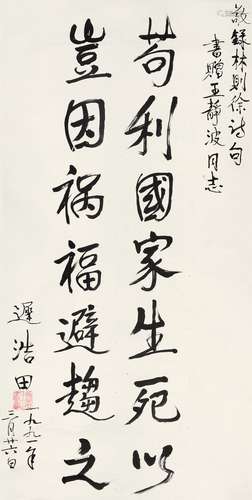 敬錄林則徐诗句
書贈王静波同志
苟利國家生死以
豈因祸福避趨之
遲浩田
一九九一年
二月廿六日